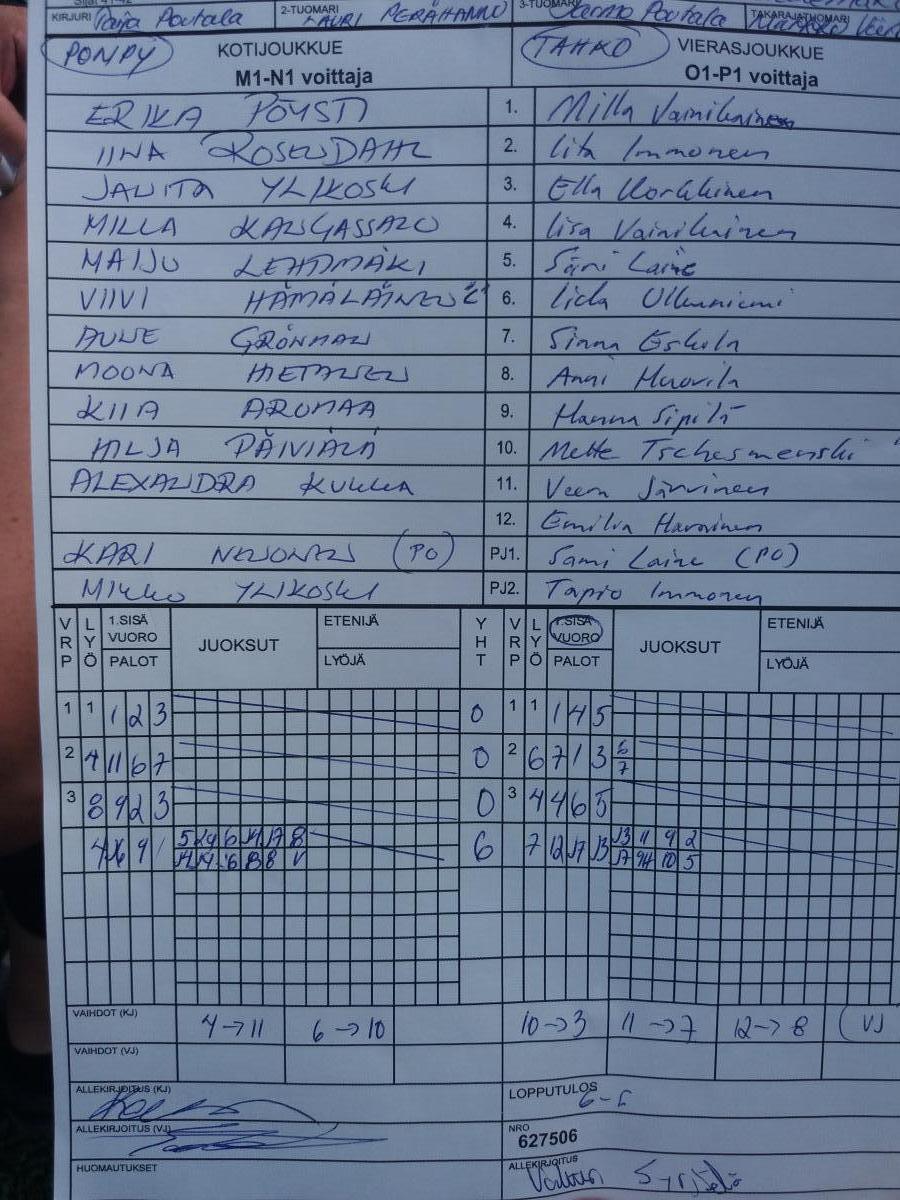 KIRJURI Tarja Poutala 2-TUOMARI LAURI PERÄHANNU 3-TUOMARI Jarmo Poutala TAKARAJATUOMARI
PONPY KOTIJOUKKUE TAHKO VIERASJOUKKUE
M1-N1 voittaja O1-P1 voittaja
ERIKA PÖYSTI 1. Milla Vainikainen
IINA ROSENDAHL 2. Iita Immonen
JANITA YLIKOSKI 3. Ella Korkkinen
MILLA KANGASSALO 4. Iisa Vainikainen
MAIJU LEHTIMÄKI 5. Sani Laine
VIIVI HÄMÄLÄINEN 6. Iida
AUNE GRÖNMAN 7. Sinna Eskola
MOONA HIETANEN 8. Anni Huovila
KIIA AROMAA 9. Hanna Sipilä
HILJA PÄIVIÄLÄ 10. Mette Tschesmenski
ALEXANDRA KUKKA 11. Veera Järvinen
12. Emilia
KARI NOJONEN (PO) PJ1. Sami Laine (PO)
MIKKO YLIKOSKI PJ2. Tapio Immonen
VRP LYÖ 1.SISÄ VUORO PALOT JUOKSUT ETENIJÄ LYÖJÄ YHT VRP LYÖ 1.SISÄ VUORO PALOT JUOKSUT ETENIJÄ LYÖJÄ
1 1 1 2 3 0 1 1 1 4 5
2 4 11 6 7 0 2 6 7 1 3 6
7
3 8 9 2 3 0 3 4 4 6 5
9 1 6 7 12
VAIHDOT (KJ) 4→11 6→10 10→3 11→7 12→8 (VJ
VAIHDOT (VJ)
ALLEKIRJOITUS (KJ) LOPPUTULOS
6-
ALLEKIRJOITUS (VJ) NRO
627506
HUOMAUTUKSET ALLEKIRJOITUS